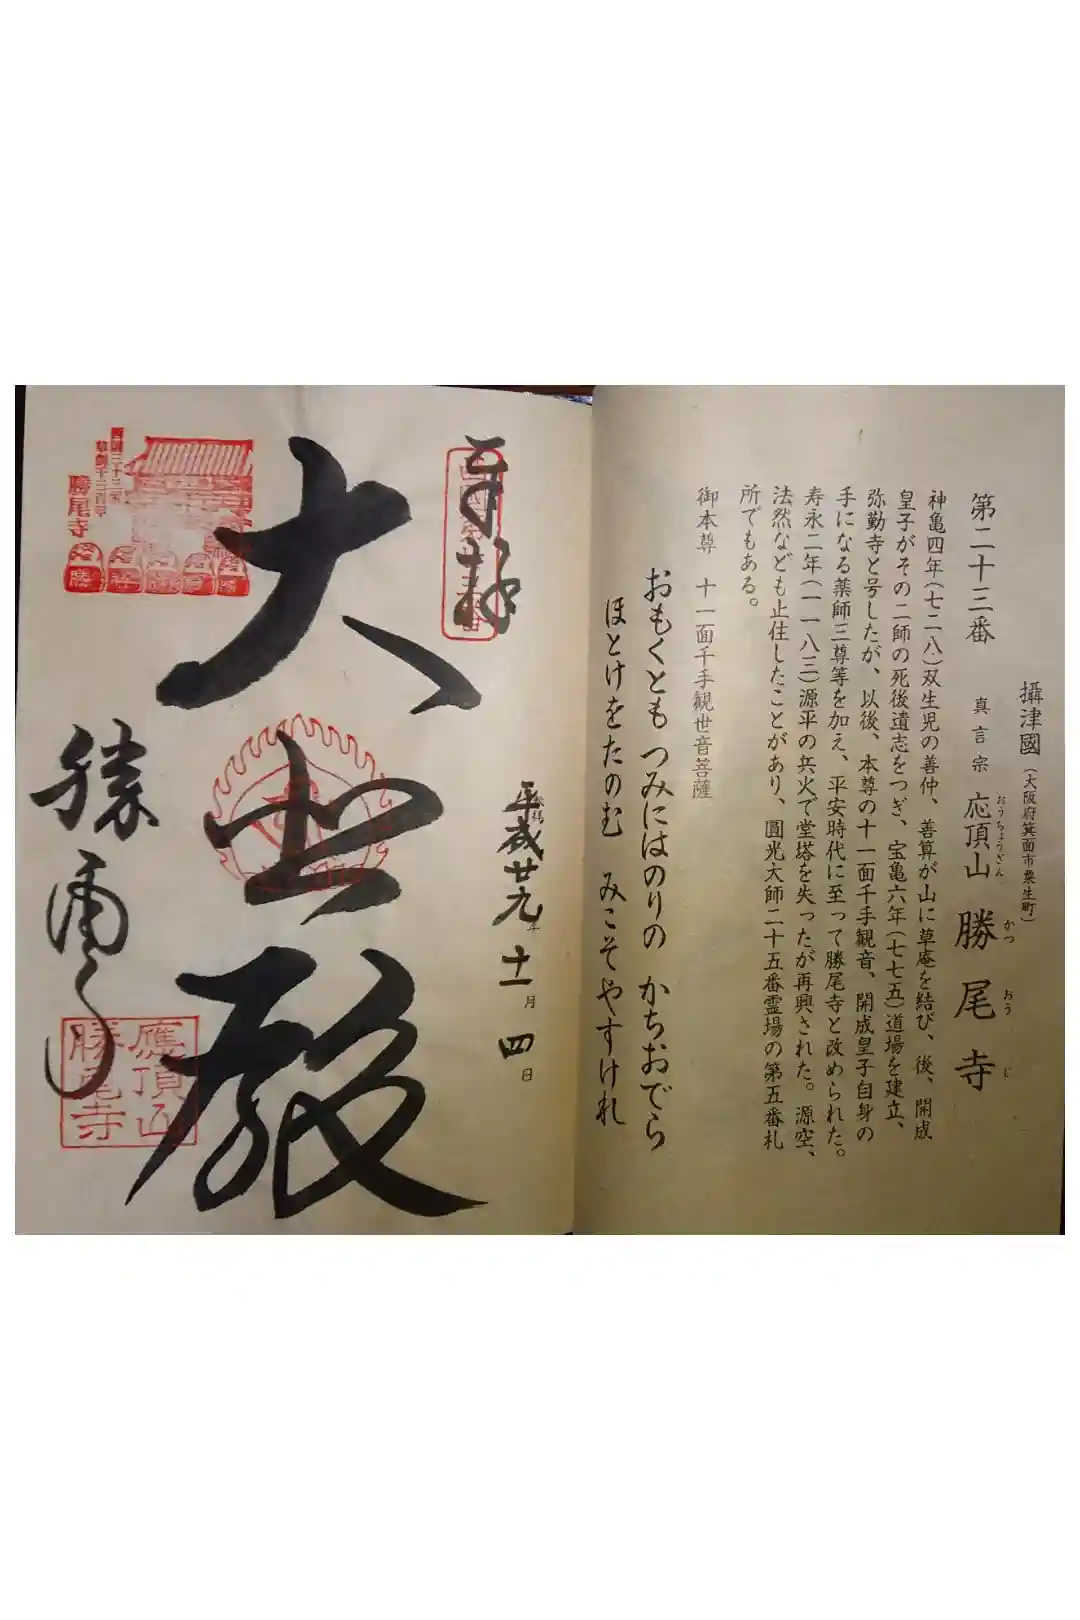 攝津國(大阪府箕面市粟生町)
第二十三番 真言宗 応頂山 勝尾寺
おうちょうざん かつ おう じ
神亀四年(七二八)双生児の善仲、善算が山に草庵を結び、後、開成
皇子がその二師の死後遺志をつぎ、宝亀六年(七七五)道場を建立、
弥勒寺と号したが、以後、本尊の十一面千手観音、開成皇子自身の
手になる薬師三尊等を加え、平安時代に至って勝尾寺と改められた。
寿永二年(一一八三)源平の兵火で堂塔を失ったが再興された。源空、
法然なども止住したことがあり、圓光大師二十五番霊場の第五番札
所でもある。
御本尊 十一面千手観世音菩薩
おもくとも つみにはのりの かちおでら
ほとけをたのむ みこそやすけれ
奉拝
平成廿九年十一月四日
大悲殿
勝尾寺
西国三十三所
草創千三百年
勝尾寺
應頂山
勝尾寺